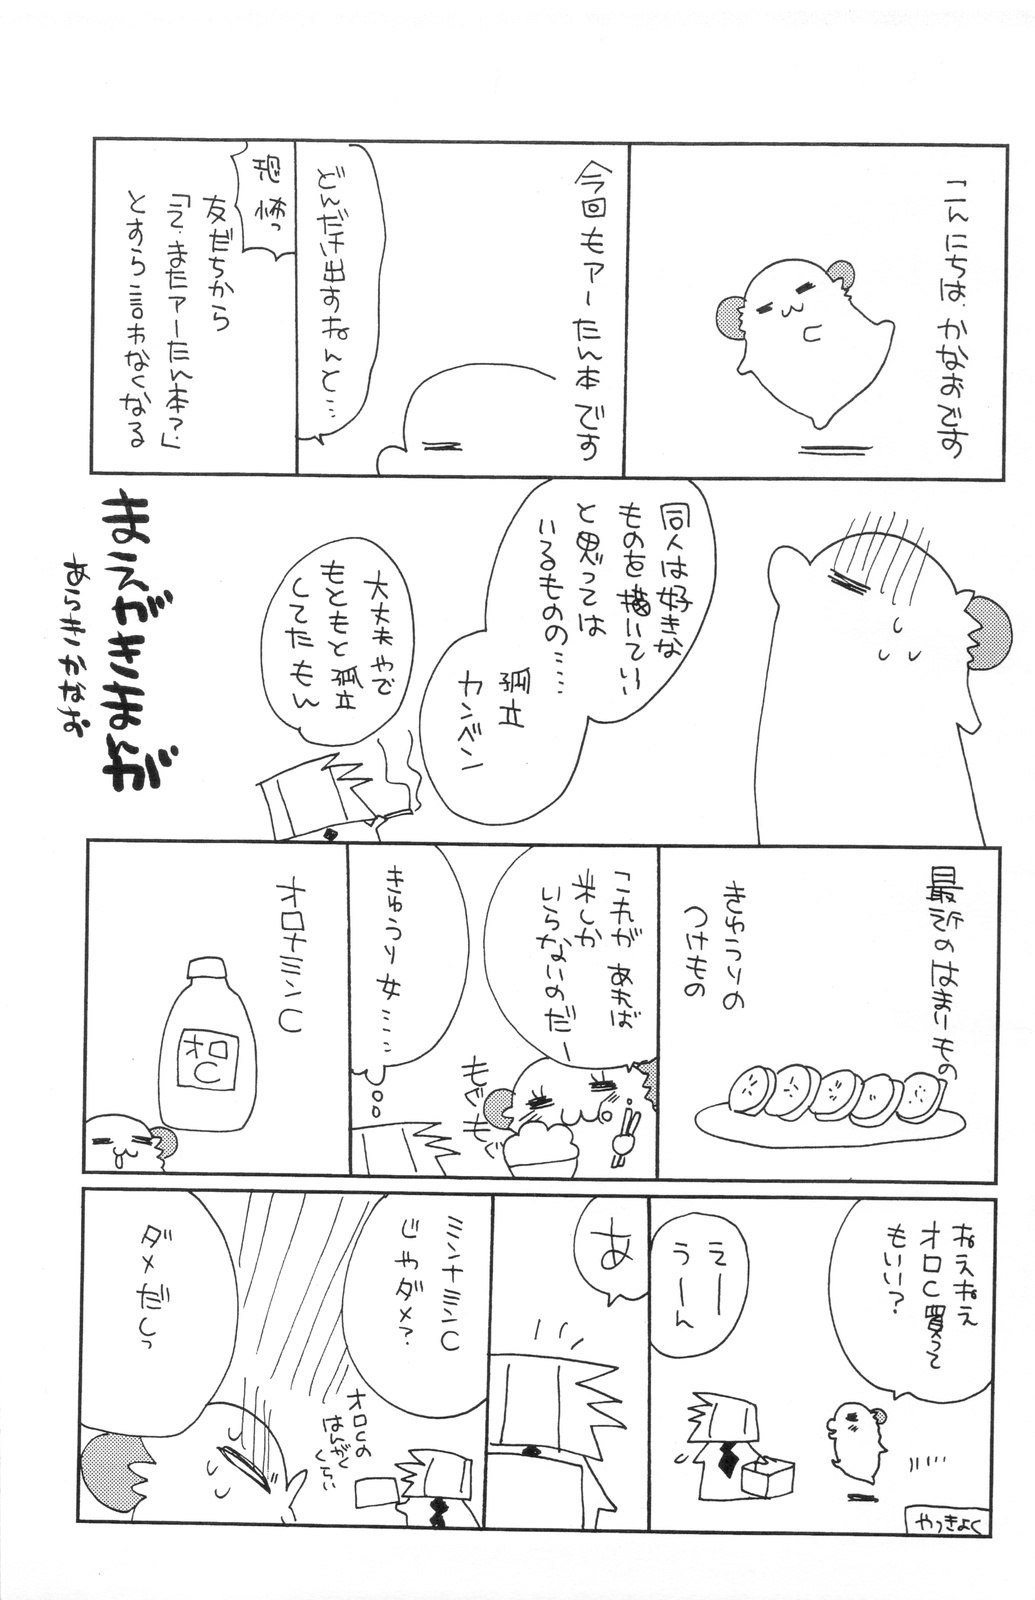 こんにちは、かなおです
今回もアーたん本です
どんだけ出すねんと…
恐怖っ
友だちから
「え・またアーたん本?」
とすら言わなくなる
同人は好きな
ものを描いていい
と思っては
いるものの……
孤立
カンベン
大丈夫やで
もともと孤立
してたもん
まえがきまんが
あらきかなお
最近のはまーもの
きゅうりの
つけもの
「これが あれば
米しか
いらないのだー
もぎもぎ
きゅうり女……
オロナミンC
オロ
C
ねえねえ
オロC買って
もいい?
えー
うーん
やっきょく
あ
ミンナミンC
じゃダメ?
オロCの
はんがく
くらい
ダメだしっ